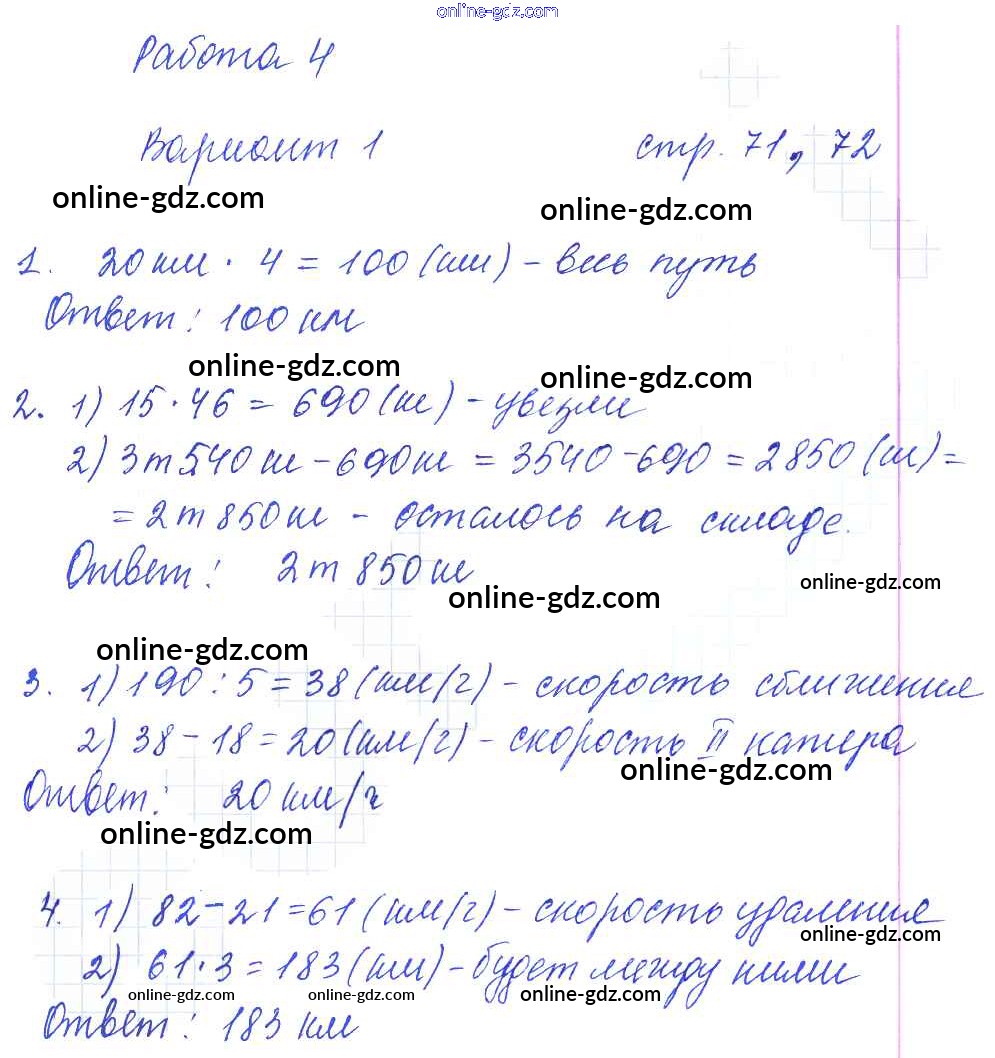 online-gdz.com
Работа 4
Вариант 1 стр. 71, 72
online-gdz.com
online-gdz.com
1. 20 км · 4 = 100 (км) - весь путь
Ответ: 100 км
online-gdz.com
online-gdz.com
2. 1) 15 · 46 = 690 (кг) - увезли
2) 3 т 540 кг - 690 кг = 3540 - 690 = 2850 (кг) =
= 2 т 850 кг - осталось на складе.
Ответ: 2 т 850 кг
online-gdz.com
online-gdz.com
online-gdz.com
3. 1) 190 : 5 = 38 (км/ч) - скорость сближения
2) 38 - 18 = 20 (км/ч) - скорость II катера
online-gdz.com
Ответ: 20 км/ч
online-gdz.com
4. 1) 82 - 21 = 61 (км/ч) - скорость удаления
online-gdz.com
2) 61 · 3 = 183 (км) - будет между ними
online-gdz.com
online-gdz.com
online-gdz.com
Ответ: 183 км